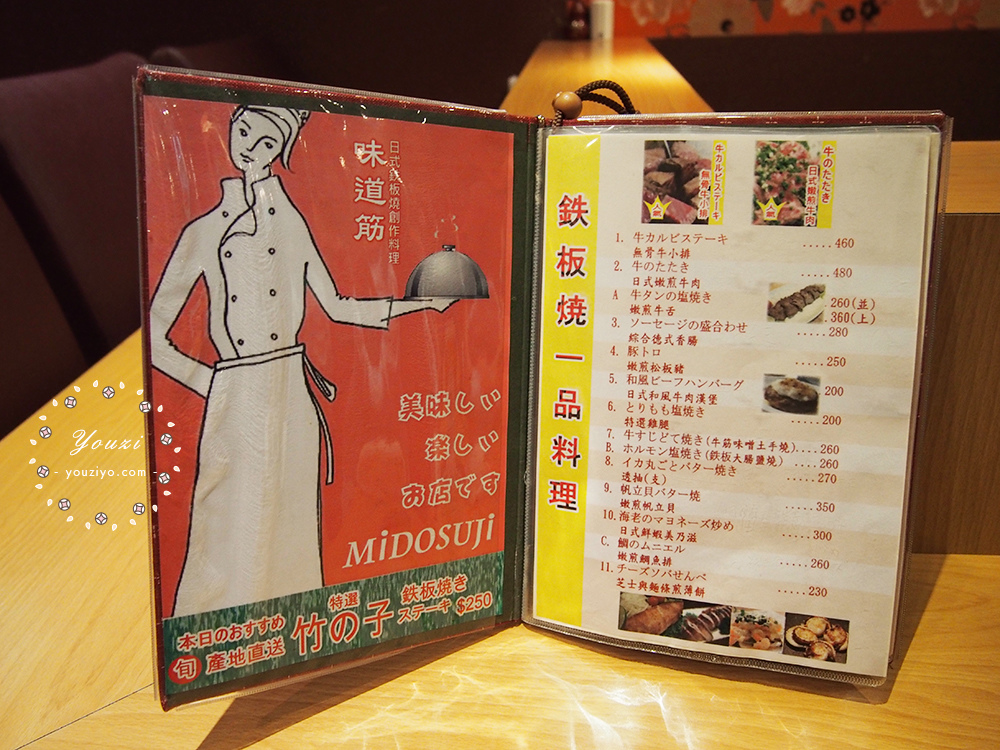 味道筋
日式鉄板燒創作料理
美味しい
楽しい
お店です
MiDOSUJi
本日のおすすめ
旬 產地直送
特選
竹の子
鉄板焼き
ステーキ $250
鉄板焼一品料理
牛カルビステーキ
無骨牛小排
人氣
牛のたたき
日式嫩煎牛肉
人氣
1. 牛カルビステーキ .....460
無骨牛小排
2. 牛のたたき .....480
日式嫩煎牛肉
A 牛タンの塩焼き 260(並)
嫩煎牛舌 .360(上)
3. ソーセージの盛合わせ .....280
綜合德式香腸
4. 豚トロ .....250
嫩煎松板豬
5. 和風ビーフハンバーグ 200
日式和風牛肉漢堡
6. とりもも塩焼き .....200
特選雞腿
7. 牛すじどて焼き(牛筋味噌土手燒)....260
B. ホルモン塩焼き(鉄板大腸鹽燒) ....260
8. イカ丸ごとバター焼き .....270
透抽(支)
9. 帆立貝バター焼 .....350
嫩煎帆立貝
10.海老のマヨネーズ炒め .....300
日式鮮蝦美乃滋
C. 鯛のムニエル .....260
嫩煎鯛魚排
11.チーズソバせんべ .....230
芝士與麵條煎薄餅
Youzi
- youziyo.com -